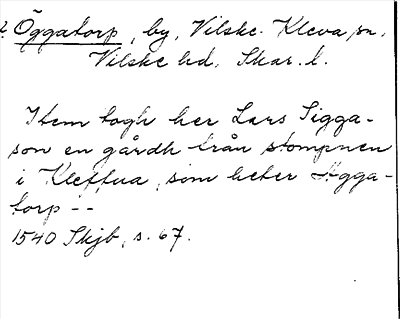 Öggatorp, by, Vilske-Kleva sn,
Vilske hd, Skar. l.
Item togh her Lars Sigga-
son en gårdh från stompnen
i Kleffua, som heter Ögga-
torp --
1540 Skjb, s. 67.